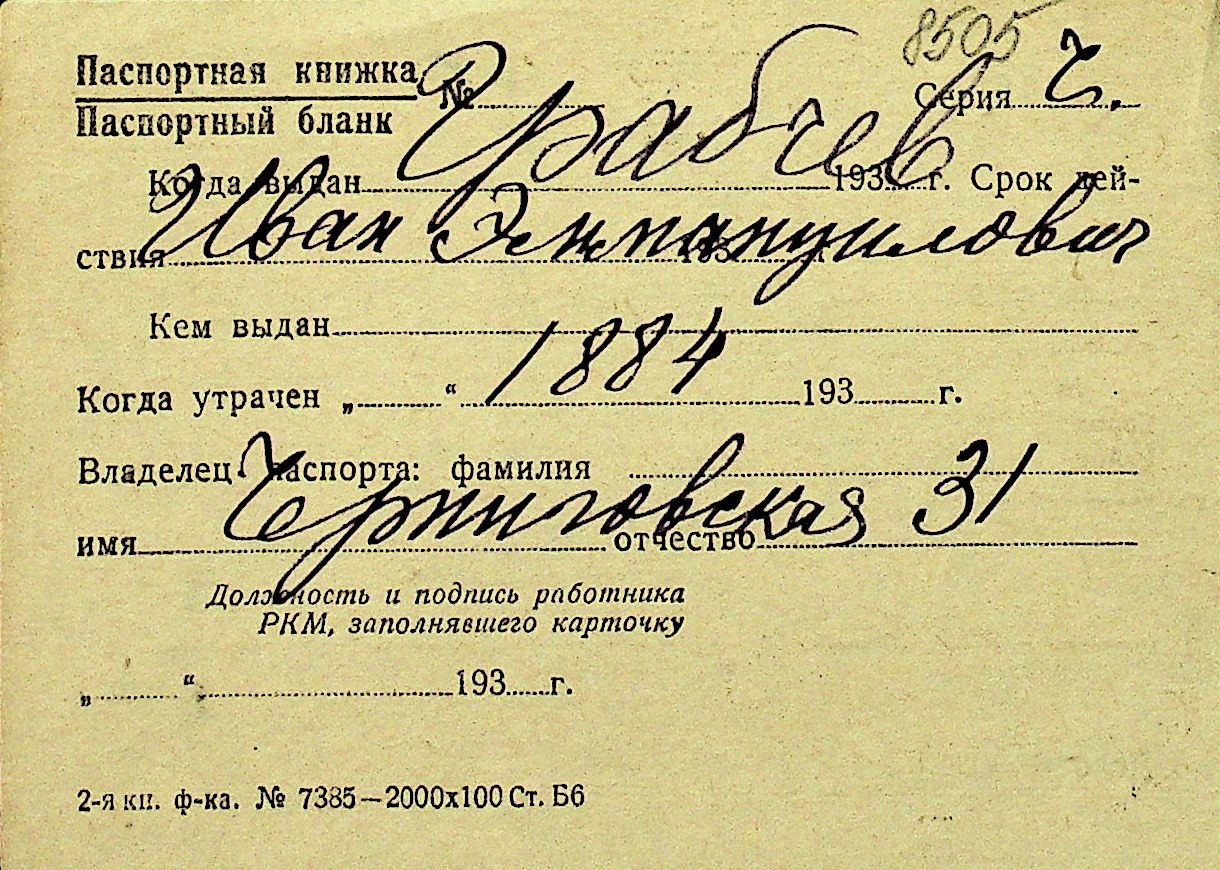 8505
Паспортная книжка № Серия Ч.
Паспортный бланк
Грабчев
Когда выдан 193 г. Срок дей-
Иван Эммануилович
ствия 193 г.
Кем выдан
1884
Когда утрачен „ “ 193 г.
Владелец паспорта: фамилия
Черниговская 31
имя отчество
Должность и подпись работника
РКМ, заполнявшего карточку
„ “ 193 г.
2-я кн. ф-ка. № 7385—2000х100 Ст. Б6